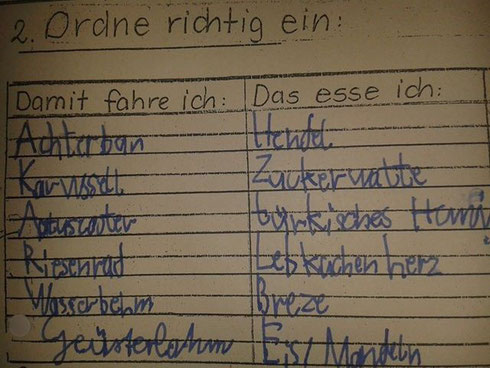 2. Ordne richtig ein:
Damit fahre ich: Das esse ich:
Achterban Hendel
Karussell Zuckerwatte
Autuscouter türkisches Honi
Riesenrad Lebkuchenherz
Wasserbehm Breze
Geüsterbahm Eis/Mandeln